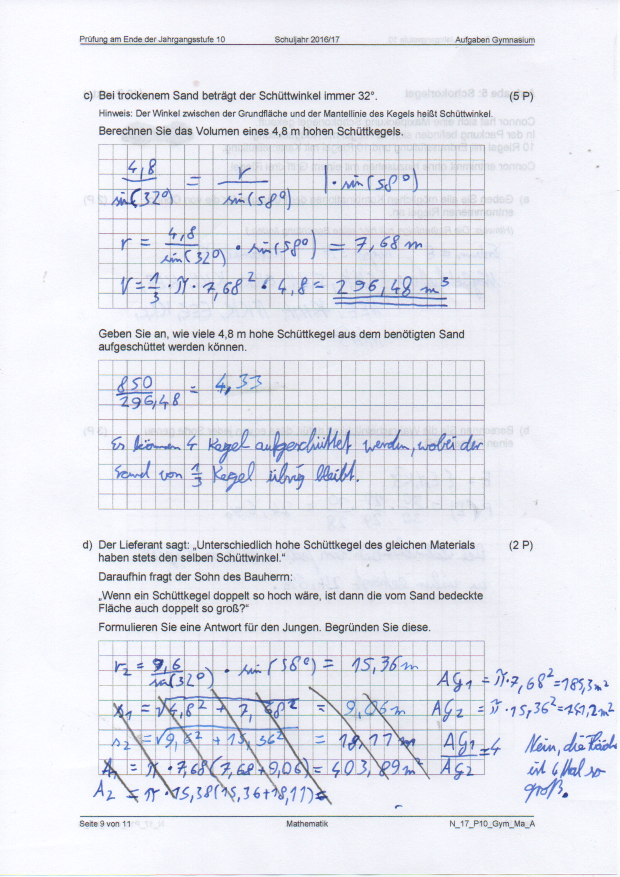 Prüfung am Ende der Jahrgangsstufe 10 Schuljahr 2016/17 Aufgaben Gymnasium
c) Bei trockenem Sand beträgt der Schüttwinkel immer 32°. (5 P)
Hinweis: Der Winkel zwischen der Grundfläche und der Mantellinie des Kegels heißt Schüttwinkel.
Berechnen Sie das Volumen eines 4,8 m hohen Schüttkegels.
4,8/sin(32°) = r/sin(58°) | · sin(58°)
r = 4,8/sin(32°) · sin(58°) = 7,68 m
V = 1/3 · π · 7,68² · 4,8 = 296,48 m³
Geben Sie an, wie viele 4,8 m hohe Schüttkegel aus dem benötigten Sand
aufgeschüttet werden können.
850/296,48 = 4,33
Es können 4 Kegel aufgeschüttet werden, wobei der
Sand von 1/3 Kegel übrig bleibt.
d) Der Lieferant sagt: „Unterschiedlich hohe Schüttkegel des gleichen Materials (2 P)
haben stets den selben Schüttwinkel.“
Daraufhin fragt der Sohn des Bauherrn:
„Wenn ein Schüttkegel doppelt so hoch wäre, ist dann die vom Sand bedeckte
Fläche auch doppelt so groß?“
Formulieren Sie eine Antwort für den Jungen. Begründen Sie diese.
r₂ = 9,6/sin(32°) · sin(58°) = 15,36 m
AG₁ = π · 7,68² = 185,3 m²
s₁ = √4,8² + 7,68² = 9,06 m
AG₂ = π · 15,36² = 741,2 m²
s₂ = √9,6² + 15,36² = 18,11 m
AG₁/AG₂ = 4
Nein, die Fläche
ist 4 Mal so
groß.
A₁ = π · 7,68 (7,68 + 9,06) = 403,89 m²
A₂ = π · 15,38 (15,36 + 18,11) =
Seite 9 von 11 Mathematik N_17_P10_Gym_Ma_A